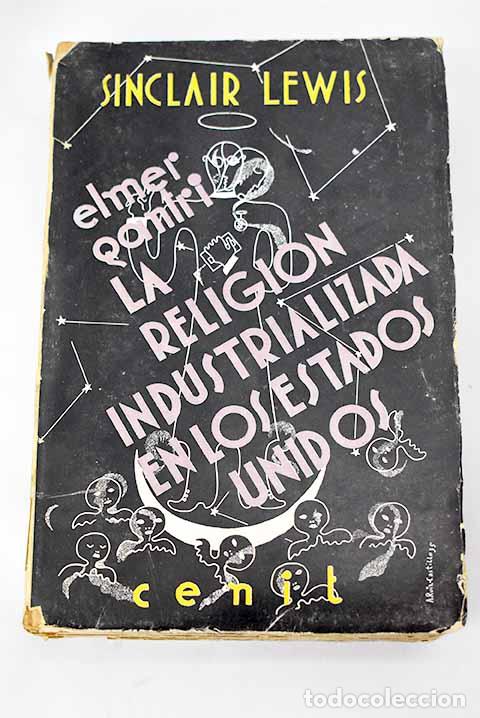 SINCLAIR LEWIS
elmer
gantri
LA
RELIGION
INDUSTRIALIZADA
EN LOS ESTADOS
UNIDOS
cenit
todocoleccion